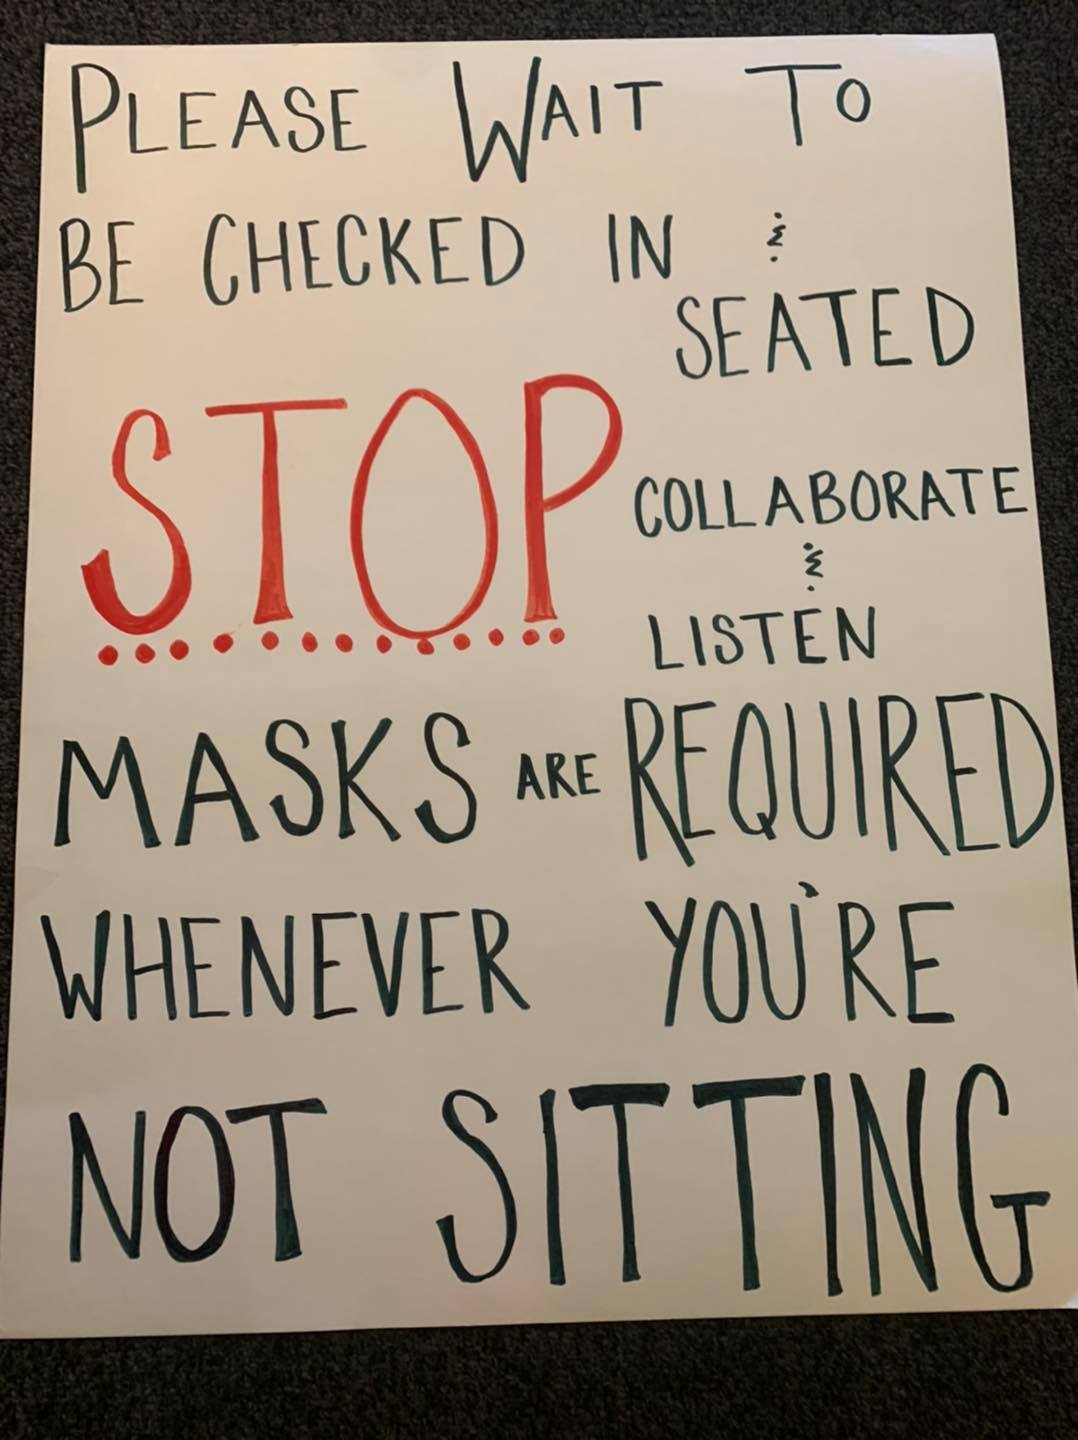 PLEASE WAIT TO
BE CHECKED IN &
SEATED
STOP COLLABORATE
&
LISTEN
MASKS ARE REQUIRED
WHENEVER YOU'RE
NOT SITTING